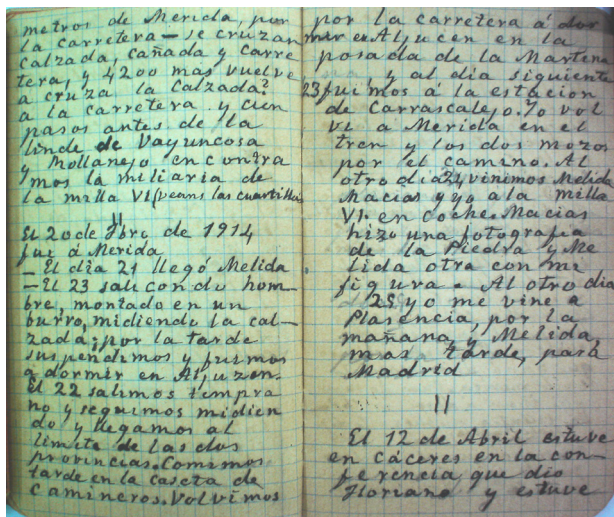 metros de Merida, por
la carretera — se cruzan
calzada, cañada y carre
tera, y 4200 mas vuelve
a cruza la calzada?
a la carretera y cien
pasos antes de la
linde de Vayuncosa
y Mollanejo encontra
mos la miliaria de
la milla VI (veans las cuartillas
11
El 20 de Fbro de 1914
fui á Merida
— El dia 21 llegó Melida
— El 23 sali con do hom-
bre, montado en un
burro, midiendo la cal-
zada; por la tarde
suspendimos y fuimos
a dormir en Aljuzen.
El 22 salimos tempra
no y seguimos midien
do y llegamos al
limite de las dos
provincias. Comimos
tarde en la caseta de
camineros. Volvimos
por la carretera á dor
mir en Aljucen en la
posada de la Martena
y al dia siguiente
23 fuimos á la estacion
de Carrascalejo. Yo vol
vi a Merida en el
tren y los dos mozos
por el camino. Al
otro dia 24 vinimos Melida
Macias y yo a la milla
VI. en coche. Macias
hizo una fotografia
de la Piedra y Me
lida otra con mi
figura. Al otro dia
25 yo me vine a
Plasencia, por la
mañana y Melida,
mas tarde, para
Madrid
11
El 12 de Abril estuve
en cáceres en la con
ferencia que dio
Floriano y estuve